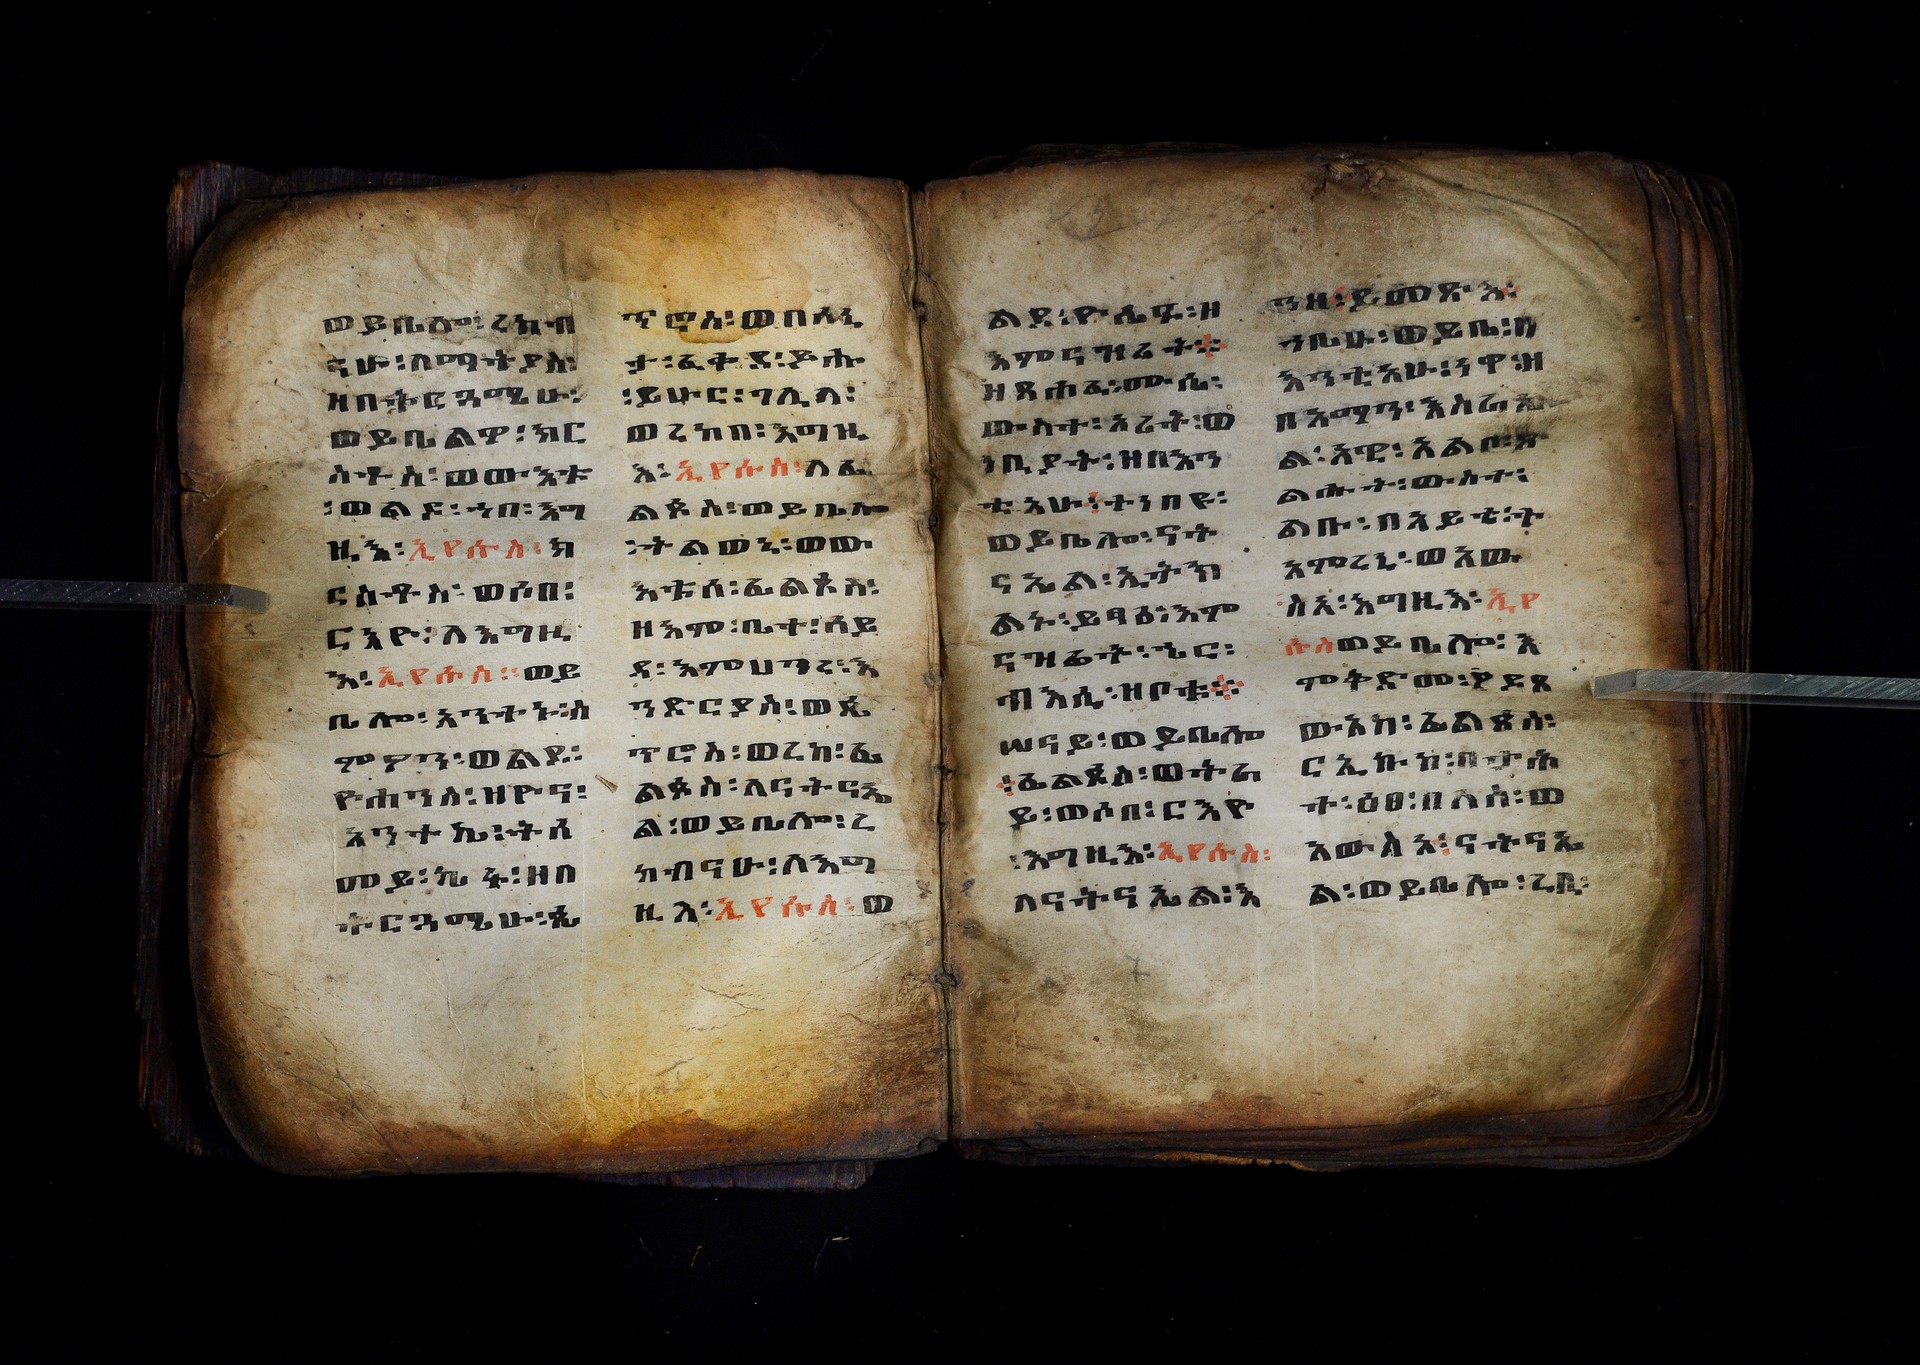 ወይቤሎ፡ረከብ
ናሁ፡ለማትያስ፡
ዘበትርጓሜሁ፡
ወይቤልዎ፡ክር
ስቶስ፡ወውእቱ
፡ወልዶ፡ኀበ፡እግ
ዚእ፡ኢየሱስ፡ክ
ርስቶስ፡ወሶበ፡
ርእዮ፡ለእግዚ
እ፡ኢየሱስ፡ወይ
ቤሎ፡አንተኑ፡ስ
ምዖን፡ወልደ፡
ዮሐንስ፡ዘዮና፡
አንተኬ፡ትሰ
መይ፡ኬፋ፡ዘበ
ትርጓሜሁ፡ጴ
ጥሮስ፡ወበሳኒ
ታ፡ፈቀደ፡ይሑ
፡ይሁር፡ገሊላ፡
ወረከበ፡እግዚ
እ፡ኢየሱስ፡ለፊ
ልጶስ፡ወይቤሎ
፡ትልወኒ፡ወው
እቱሰ፡ፊልጶስ፡
ዘእም፡ቤተ፡ሳይ
ዳ፡እምሀገረ፡እ
ንድርያስ፡ወጴ
ጥሮስ፡ወረከ፡ፊ
ልጶስ፡ለናትናኤ
ል፡ወይቤሎ፡ረ
ከብናሁ፡ለእግ
ዚእ፡ኢየሱስ፡ወ
ልደ፡ዮሴፍ፡ዘ
እምናዝሬት፨
ዘጸሐፈ፡ሙሴ፡
ውስተ፡ኦሪት፡ወ
ነቢያት፡ዘበእን
ቲአሁ፡ተነበዩ፡
ወይቤሎ፡ናት
ናኤል፡ኢትክ
ልኑ፡ይፃዕ፡እም
ናዝሬት፡ኄር፡
ብእሲ፡ዘቦቱ፨
ሠናይ፡ወይቤሎ
፡ፊልጶስ፡ወትሬ
ይ፡ወሶበ፡ርእዮ
፡እግዚእ፡ኢየሱስ፡
ለናትናኤል፡እ
ንዘ፡ይመጽእ፡
ኀቤሁ፡ወይቤ፡በ
እንቲአሁ፡ነዋ፡ዘ
በአማን፡እስራኤ
ል፡አዊ፡አልቦ፡ጽ
ልሑት፡ውስተ፡
ልቡ፡በአይቴ፡ት
አምረኒ፡ወአው
ስአ፡እግዚእ፡ኢየ
ሱስወይቤሎ፡እ
ምቅድመ፡ዮደጸ
ውአከ፡ፊልጶስ፡
ርኢኩከ፡በታሕ
ተ፡ዕፀ፡በለስ፡ወ
አውሰአ፡ናትናኤ
ል፡ወይቤሎ፡ረቢ፡